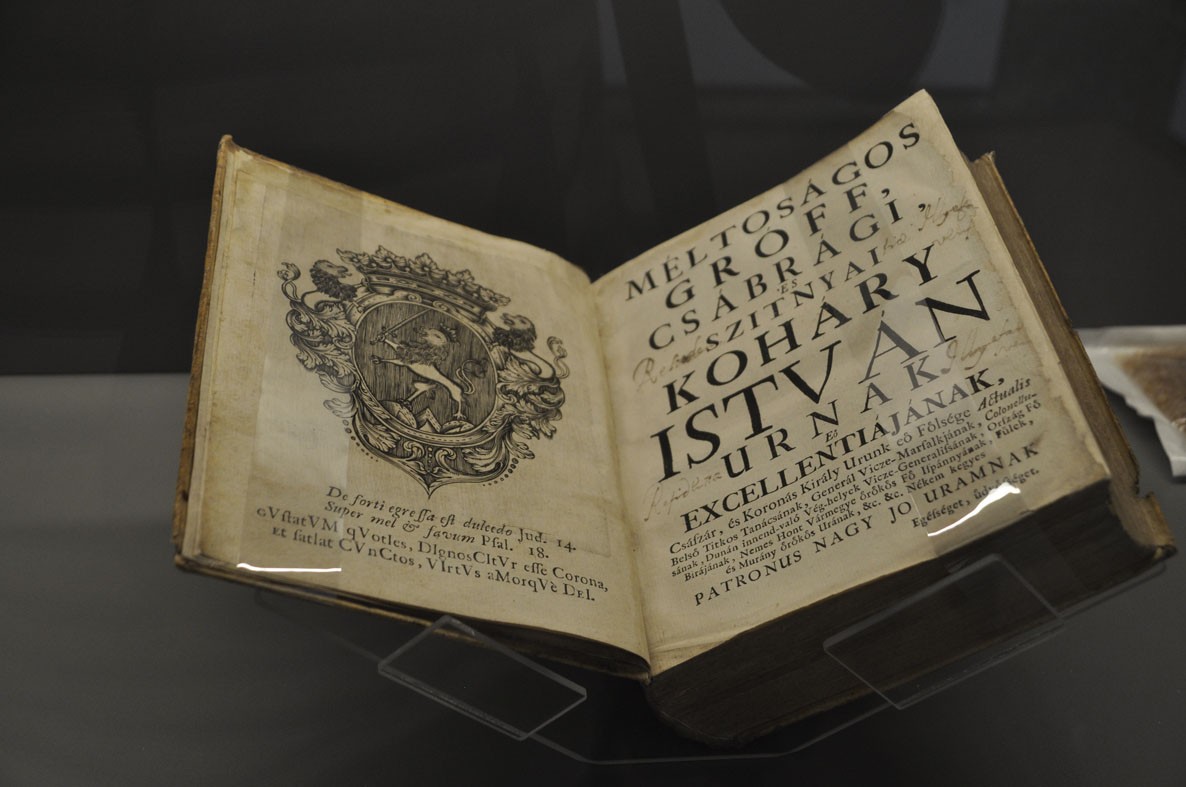 De sorti egressa est dulcedo Jud. 14.
Super mel & favum Psal. 18.
GVstatVM qVoties, DIgnosCItVr esse Corona,
Et satIat CVnCtos, VIrtVs aMorqVè DEI.
MÉLTOSÁGOS
GROFF,
CSÁBRÁGI,
ÉS
SZITNYAI
KOHÁRY
ISTVÁN
URNAK
EÖ
EXCELLENTIÁJÁNAK,
Császár, és Koronás Király Urunk eö Fölsége Actualis
Belsö Titkos Tanácsának, Generál Vicze-Marsalkjának, Colonellu-
sának, Dunán innend-való Vég-helyek Vicze-Generalissának, Ország Fö
Birájának, Nemes Hont Vármegye örökös Fö Ispánnyának, Fülek,
és Murány örökös Urának, &c. &c. Nékem kegyes
PATRONUS NAGY JO URAMNAK
Egésséget,